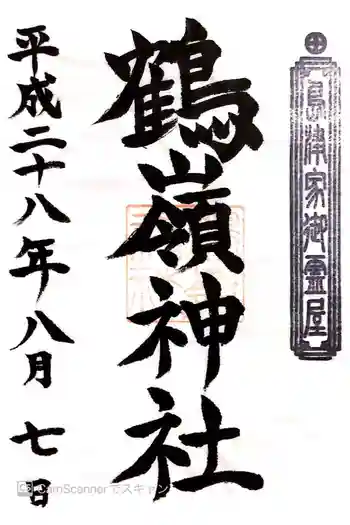 島津家御霊屋
鶴嶺神社
平成二十八年八月七日
CamScannerでスキャン